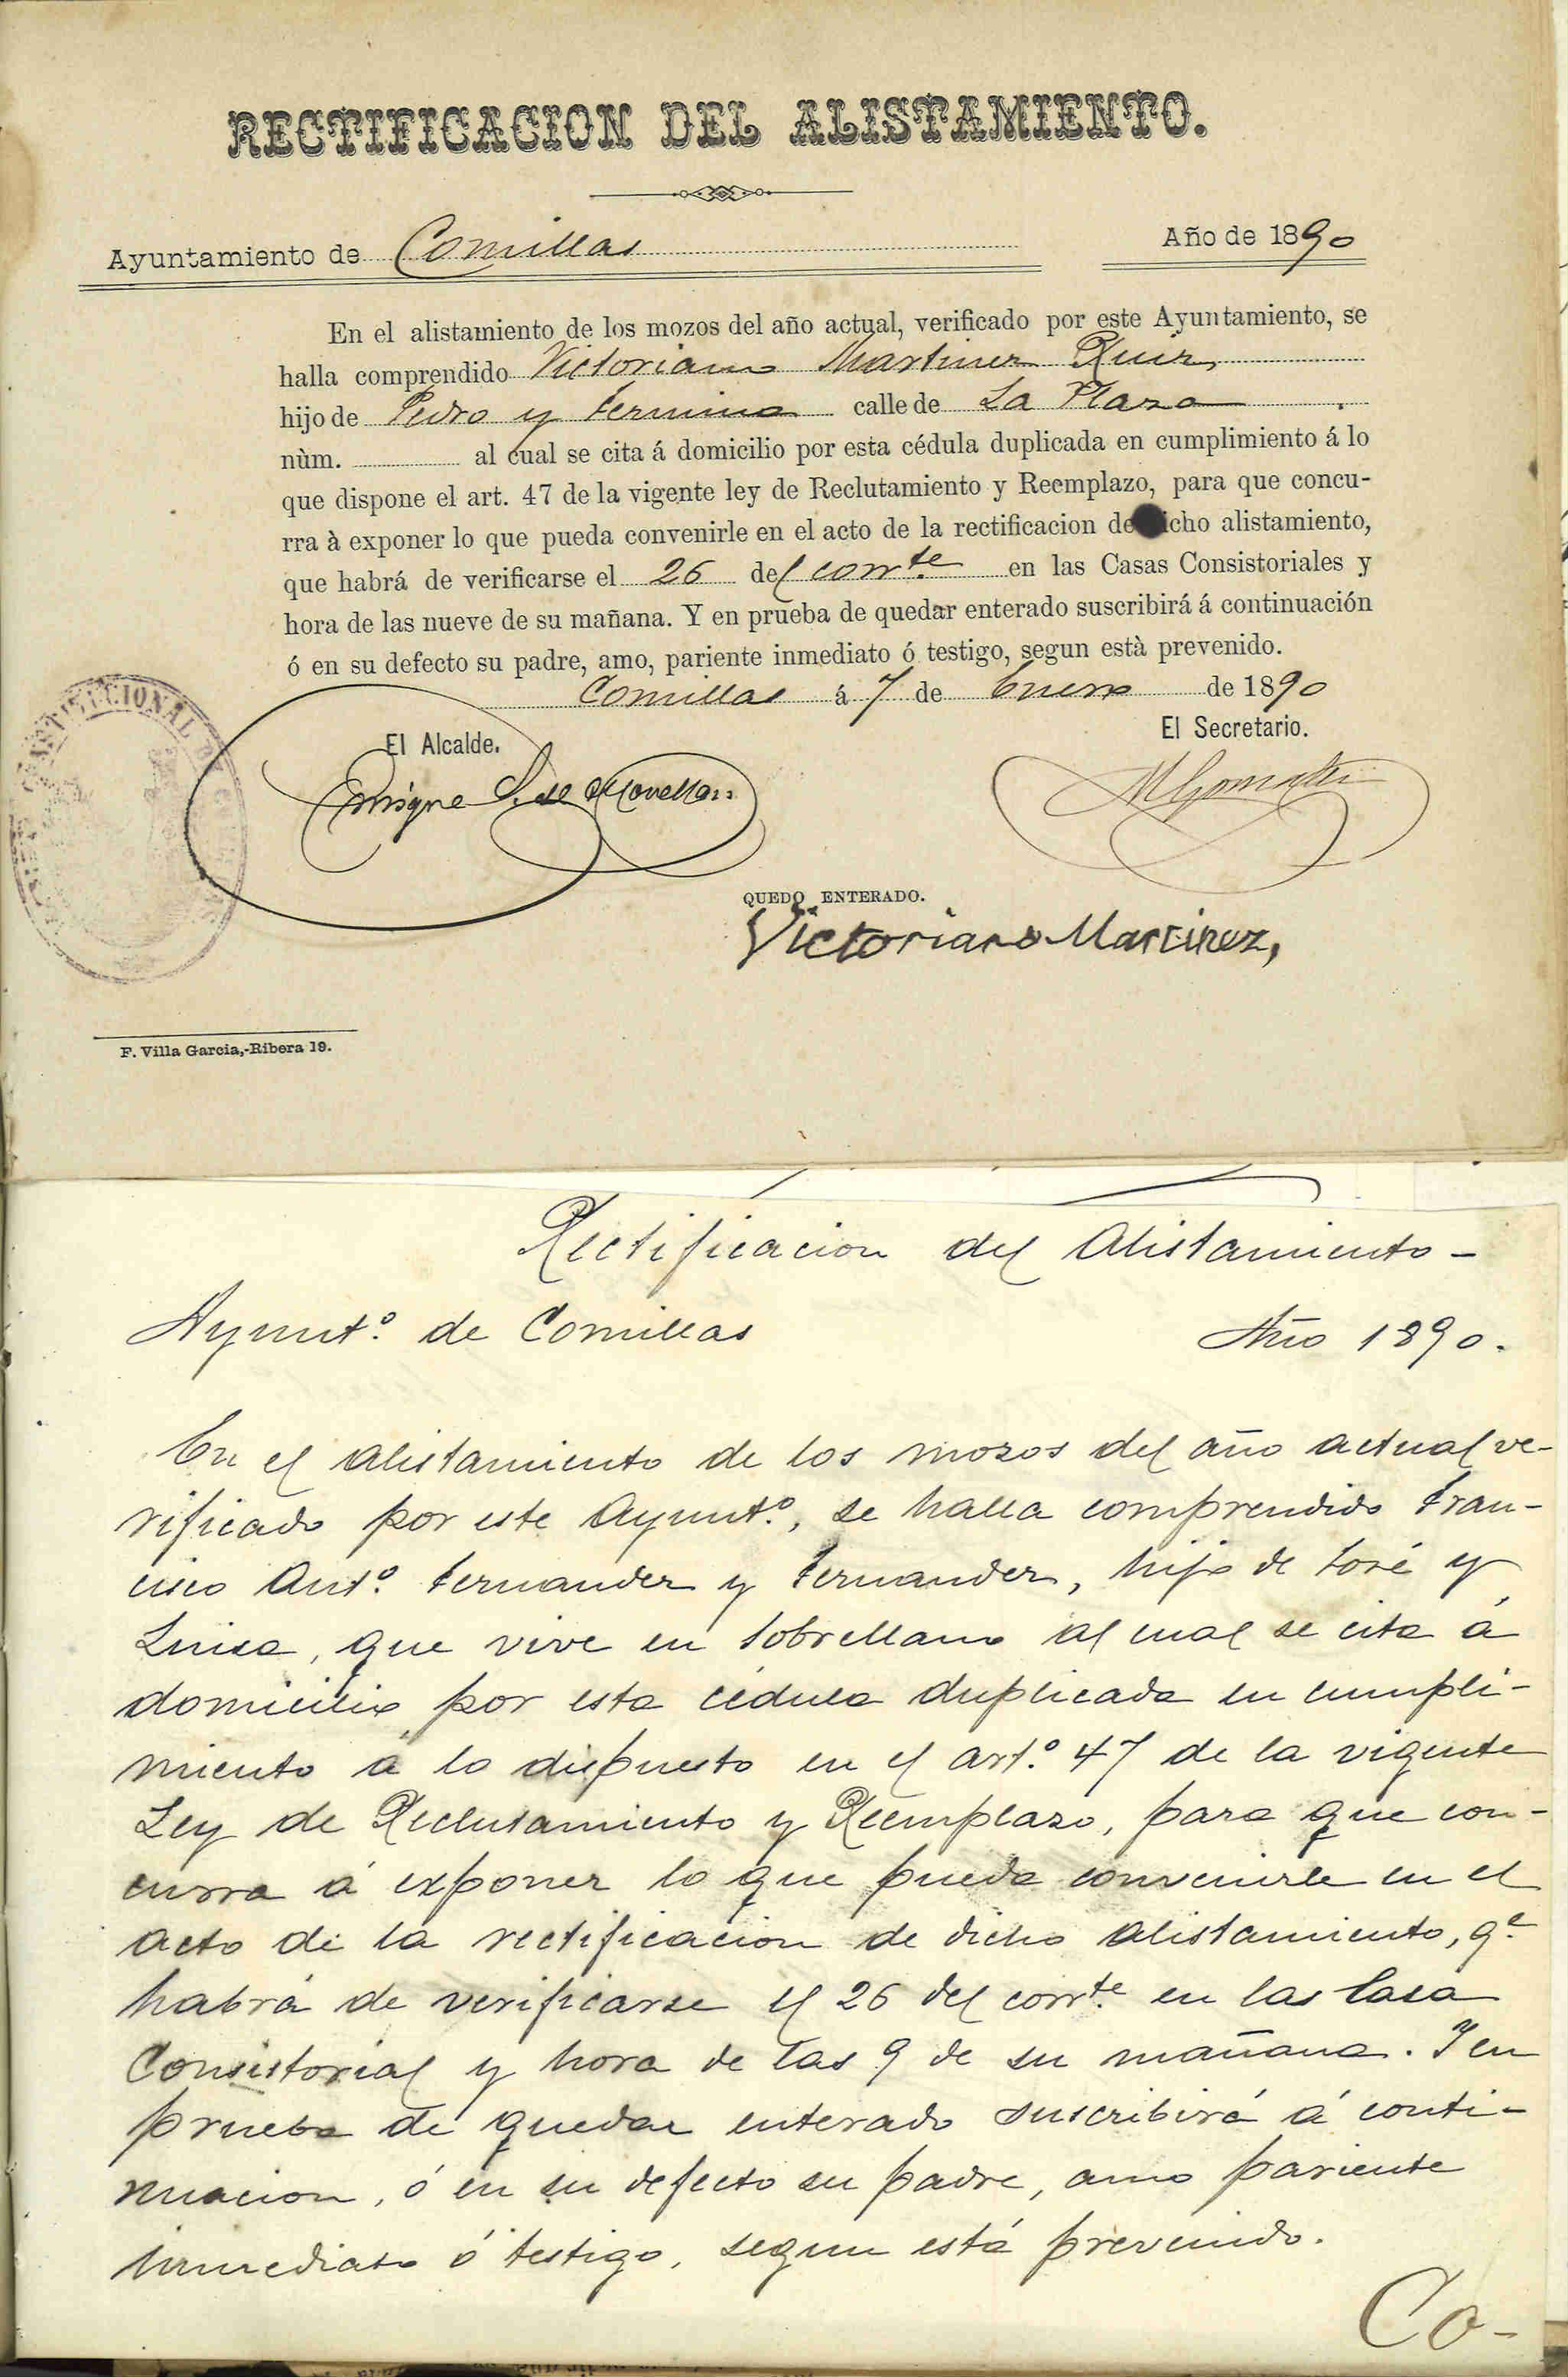 RECTIFICACION DEL ALISTAMIENTO.
Ayuntamiento de Comillas Año de 1890
En el alistamiento de los mozos del año actual, verificado por este Ayuntamiento, se
halla comprendido Victoriano Martinez Ruiz,
hijo de Pedro y Fermina calle de La Plaza
nùm. al cual se cita á domicilio por esta cédula duplicada en cumplimiento á lo
que dispone el art. 47 de la vigente ley de Reclutamiento y Reemplazo, para que concu-
rra à exponer lo que pueda convenirle en el acto de la rectificacion de dicho alistamiento,
que habrá de verificarse el 26 del corrte en las Casas Consistoriales y
hora de las nueve de su mañana. Y en prueba de quedar enterado suscribirá á continuación
ó en su defecto su padre, amo, pariente inmediato ó testigo, segun està prevenido.
Comillas á 7 de Enero de 1890
El Alcalde. El Secretario.
Enrique S. de Movellan
QUEDO ENTERADO.
Victoriano Martinez,
F. Villa Garcia,-Ribera 19.
Rectificacion del Alistamiento-
Ayuntº de Comillas Año 1890.
En el alistamiento de los mozos del año actual ve-
rificado por este Ayuntº, se halla comprendido Fran-
cisco Antº Fernandez y Fernandez, hijo de José y
Luisa, que vive en Sobrellano al cual se cita á
domicilio por esta cédula duplicada en cumpli-
miento á lo dispuesto en el artº 47 de la vigente
Ley de Reclutamiento y Reemplazo, para que con-
curra á exponer lo que pueda convenirle en el
acto de la rectificacion de dicho alistamiento, qe
habrá de verificarse el 26 del corrte en las Casa
Consistorial y hora de las 9 de su mañana. Y en
prueba de quedar enterado suscribirá á conti-
nuacion, ó en su defecto su padre, amo pariente
inmediato ó testigo, segun está prevenido.
Co-